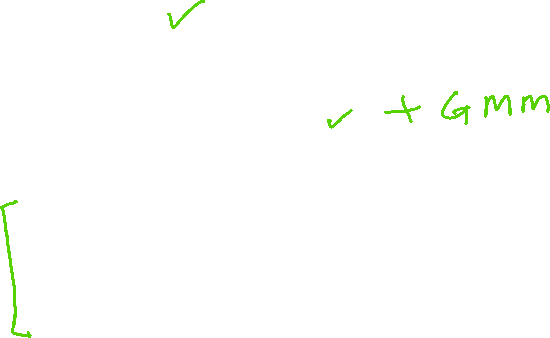 ✓
✓ + GMM
[